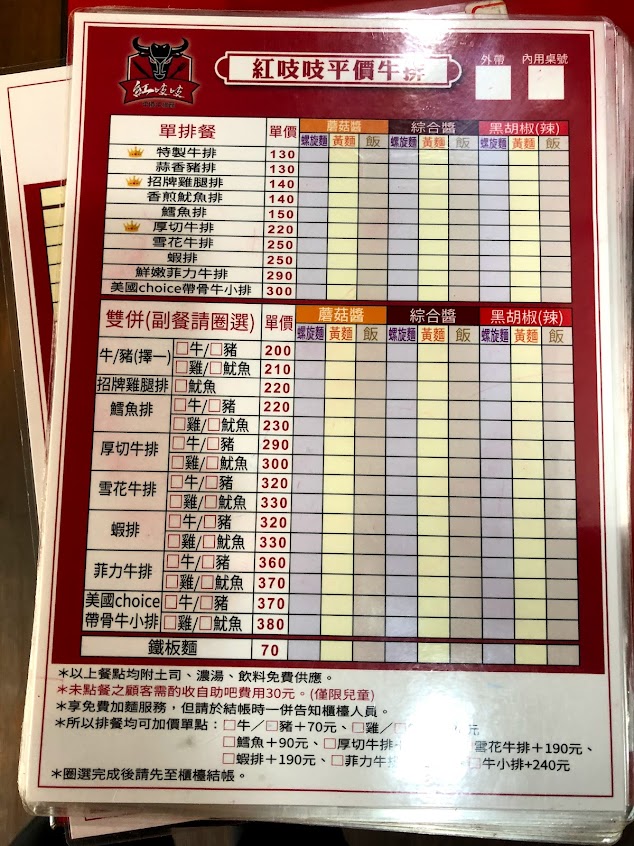 紅吱吱
紅吱吱平價牛排
外帶 內用桌號
單排餐 單價 蘑菇醬 綜合醬 黑胡椒(辣)
螺旋麵 黃麵 飯 螺旋麵 黃麵 飯 螺旋麵 黃麵 飯
特製牛排 130
蒜香豬排 130
招牌雞腿排 140
香煎魷魚排 140
鱈魚排 150
厚切牛排 220
雪花牛排 250
蝦排 250
鮮嫩菲力牛排 290
美國choice帶骨牛小排 300
雙併(副餐請圈選) 單價 蘑菇醬 綜合醬 黑胡椒(辣)
螺旋麵 黃麵 飯 螺旋麵 黃麵 飯 螺旋麵 黃麵 飯
牛/豬(擇一) □牛/□豬 200
□雞/□魷魚 210
招牌雞腿排 □魷魚 220
鱈魚排 □牛/□豬 220
□雞/□魷魚 230
厚切牛排 □牛/□豬 290
□雞/□魷魚 300
雪花牛排 □牛/□豬 320
□雞/□魷魚 330
蝦排 □牛/□豬 320
□雞/□魷魚 330
菲力牛排 □牛/□豬 360
□雞/□魷魚 370
美國choice □牛/□豬 370
帶骨牛小排 □雞/□魷魚 380
鐵板麵 70
*以上餐點均附土司、濃湯、飲料免費供應。
*未點餐之顧客需酌收自助吧費用30元。(僅限兒童)
*享免費加麵服務，但請於結帳時一併告知櫃檯人員。
*所以排餐均可加價單點：□牛／□豬＋70元、□雞／□ 元
□鱈魚＋90元、□厚切牛排 雪花牛排＋190元、
□蝦排＋190元、□菲力牛 □牛小排+240元
*圈選完成後請先至櫃檯結帳。